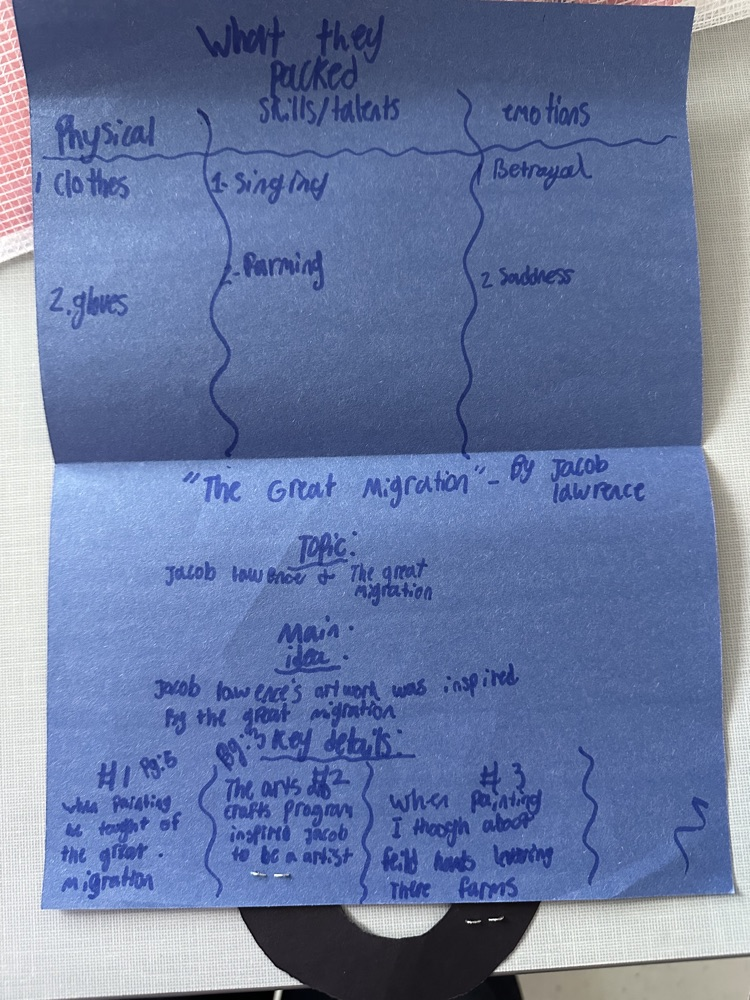 What they
packed
Physical
skills/talents
emotions
1 Clothes
2. gloves
1- Singing
2- Farming
1 Betrayal
2 Saddness
"The Great Migration" - By Jacob
lawrence
Topic:
Jacob lawrence & The great
migration
Main
idea:
Jacob lawrence's artwork was inspired
By the great migration
Key details:
#1 Pg:5
when painting
he tought of
the great.
migration
Pg:3
#2
The arts &
crafts program
inspired Jacob
to be a artist
#3
when painting
I though about
feild hands leaving
There farms